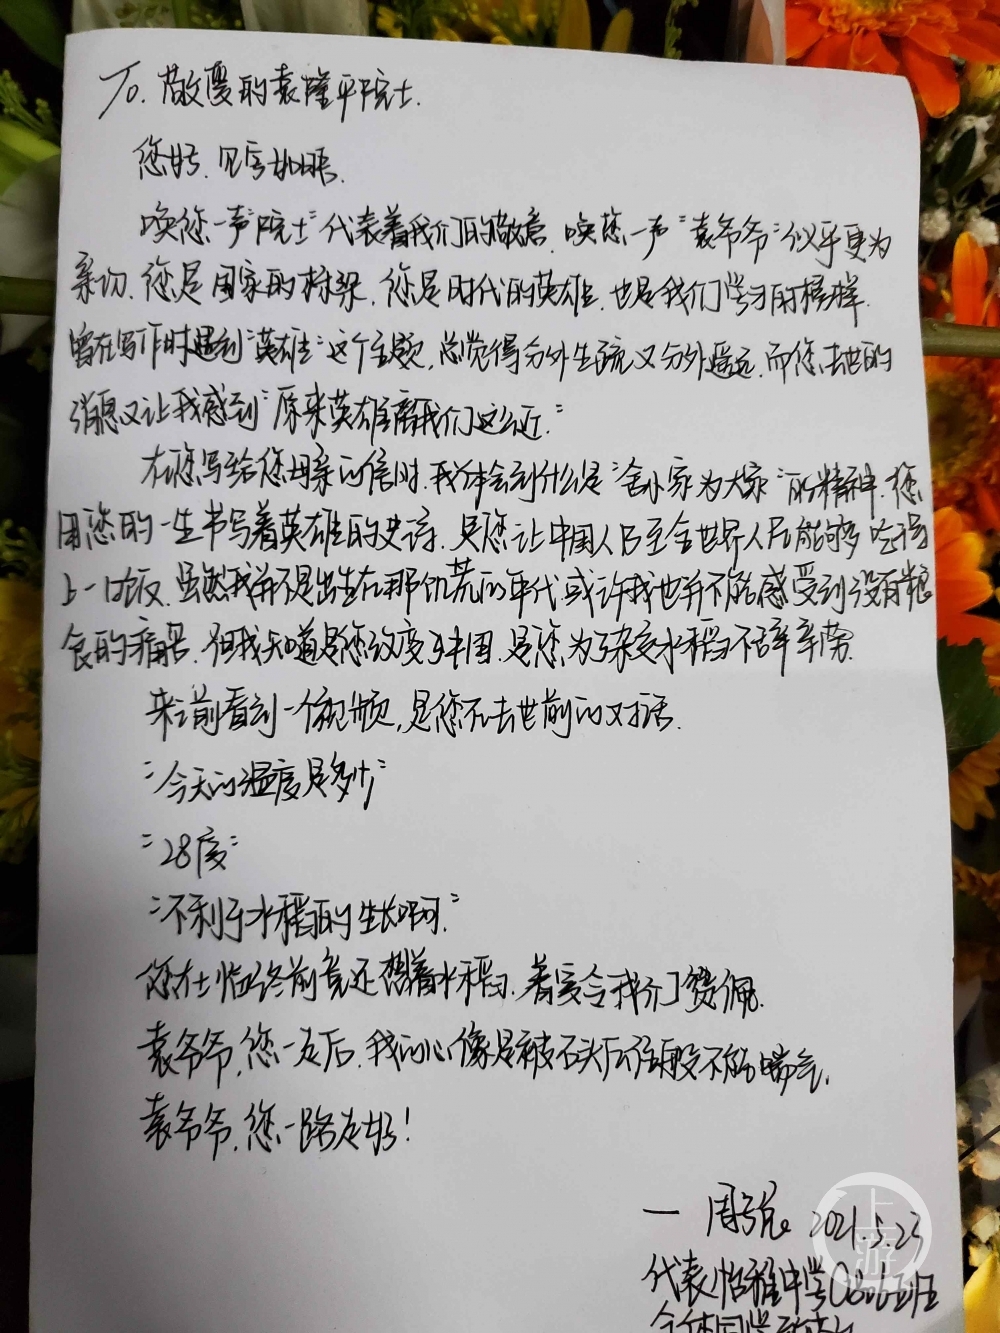 To. 敬爱的袁隆平院士.
您好.见字如晤.
唤您一声"院士"代表着我们的敬意.唤您一声"袁爷爷"似乎更为
亲切.您是国家的栋梁.您是时代的英雄.也是我们学习的榜样.
曾在写作时遇到"英雄"这个主题,总觉得分外生疏又分外遥远.而您去世的
消息又让我感到"原来英雄离我们这么近."
在您写给您母亲的信时.我体会到什么是"舍小家为大家"的精神.您
用您的一生书写着英雄的史诗.是您让中国人乃至全世界人民能够吃得
上一口饭.虽然我并不是出生在那饥荒的年代或许我也并不能感受到没有粮
食的痛苦.但我知道是您改变了中国.是您为了杂交水稻不辞辛劳.
来之前看到一个视频,是您在去世前的对话.
"今天的温度是多少"
"28度"
"不利于水稻的生长啊."
您在临终前竟还想着水稻.着实令我们赞佩.
袁爷爷,您一走后.我的心像是被石头压住般不能喘气.
袁爷爷.您一路走好!
— 周 2021.5.23
代表怡雅中学 班
全体同学
上游